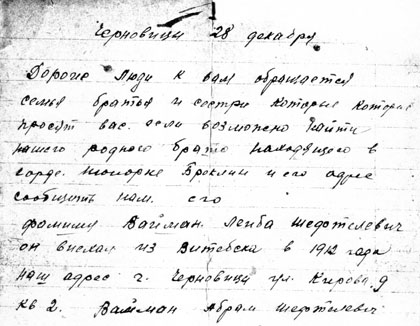 Черновици 28 декабря
Дорогие люди к вам обращается
семья братья и сестри которые которые
просят вас. если возможно найти
нашего родного брата находящего в
горде. Нюиорке Броклин и его адрес
сообщить нам. его
фамилия Вайман Лейба Шефтелевич
он виехал из Витебска в 1912 года
наш адрес г. Черновици ул. Кирова 9
кв 2. Вайман Абрам Шефтелевич